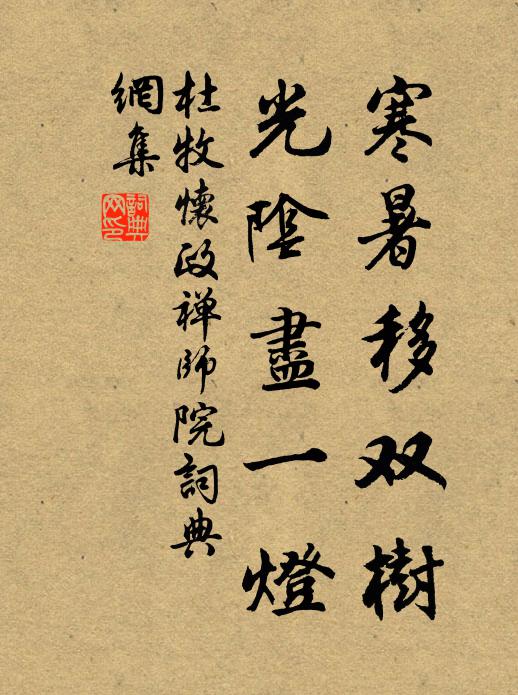 寒暑移双樹
光陰盡一燈
杜牧懷政禅師院詞典
網集
詞典
网印